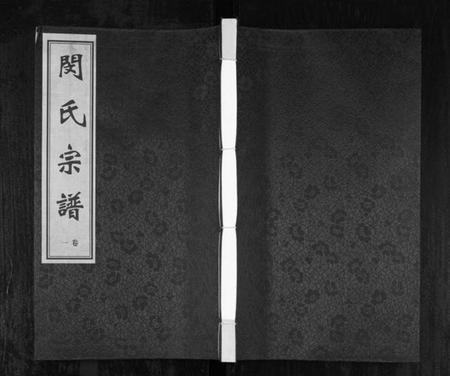 閔氏宗譜
卷一